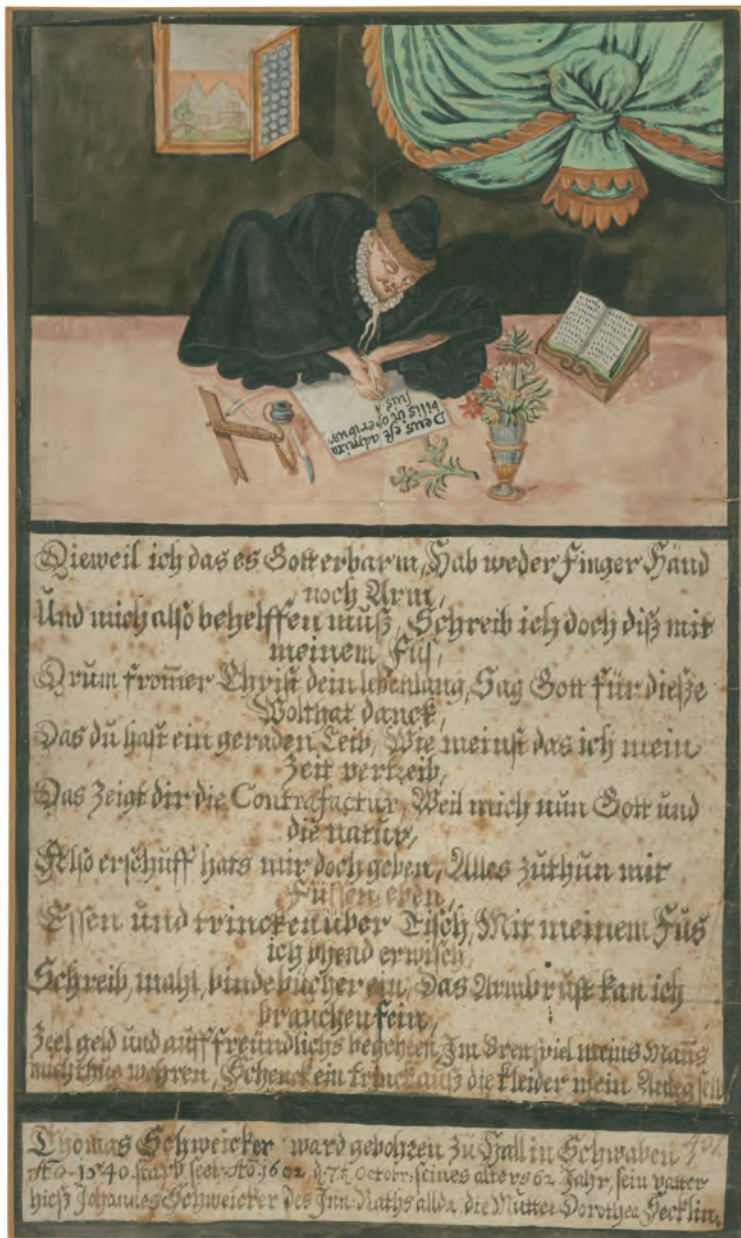 Deus est admira
bilis in operibus
suis
Dieweil ich das es Gott erbarm, Hab weder Finger Händ
noch Arm,
Und mich also behelffen muß, Schreib ich doch diß mit
meinem Fus,
Drum from̄er Christ dein lebenlang, Sag Gott für dieße
Wolthat danck,
Das du hast ein geraden Leib, Wie meinst das ich mein
Zeit vertreib,
Das Zeigt dir die Contrafactur, Weil mich nun Gott und
die natur,
Also erschuff hats mir doch geben, Alles zuthun mit
Füssen eben,
Essen und trincken über Tisch, Mit meinem Fus
ich erwisch,
Schreib, mahl, binde bücher ein, Das Armbrust kan ich
brauchen fein,
Zeel geld und auff freundlichs begehren, Im Bretspiel meins Mañs
mich thue wehren, Schenck ein trinck auß die kleider mein
Thomas Schweicker ward gebohren zu Hall in Schwaben
Aō. 1540. starb seel. Aō. 1602, d. 7t Octobr. seines alters 62 Jahr, sein vatter
hieß Johannes Schweicker des Inn. Raths allda, die Mutter Dorothea Secklin.